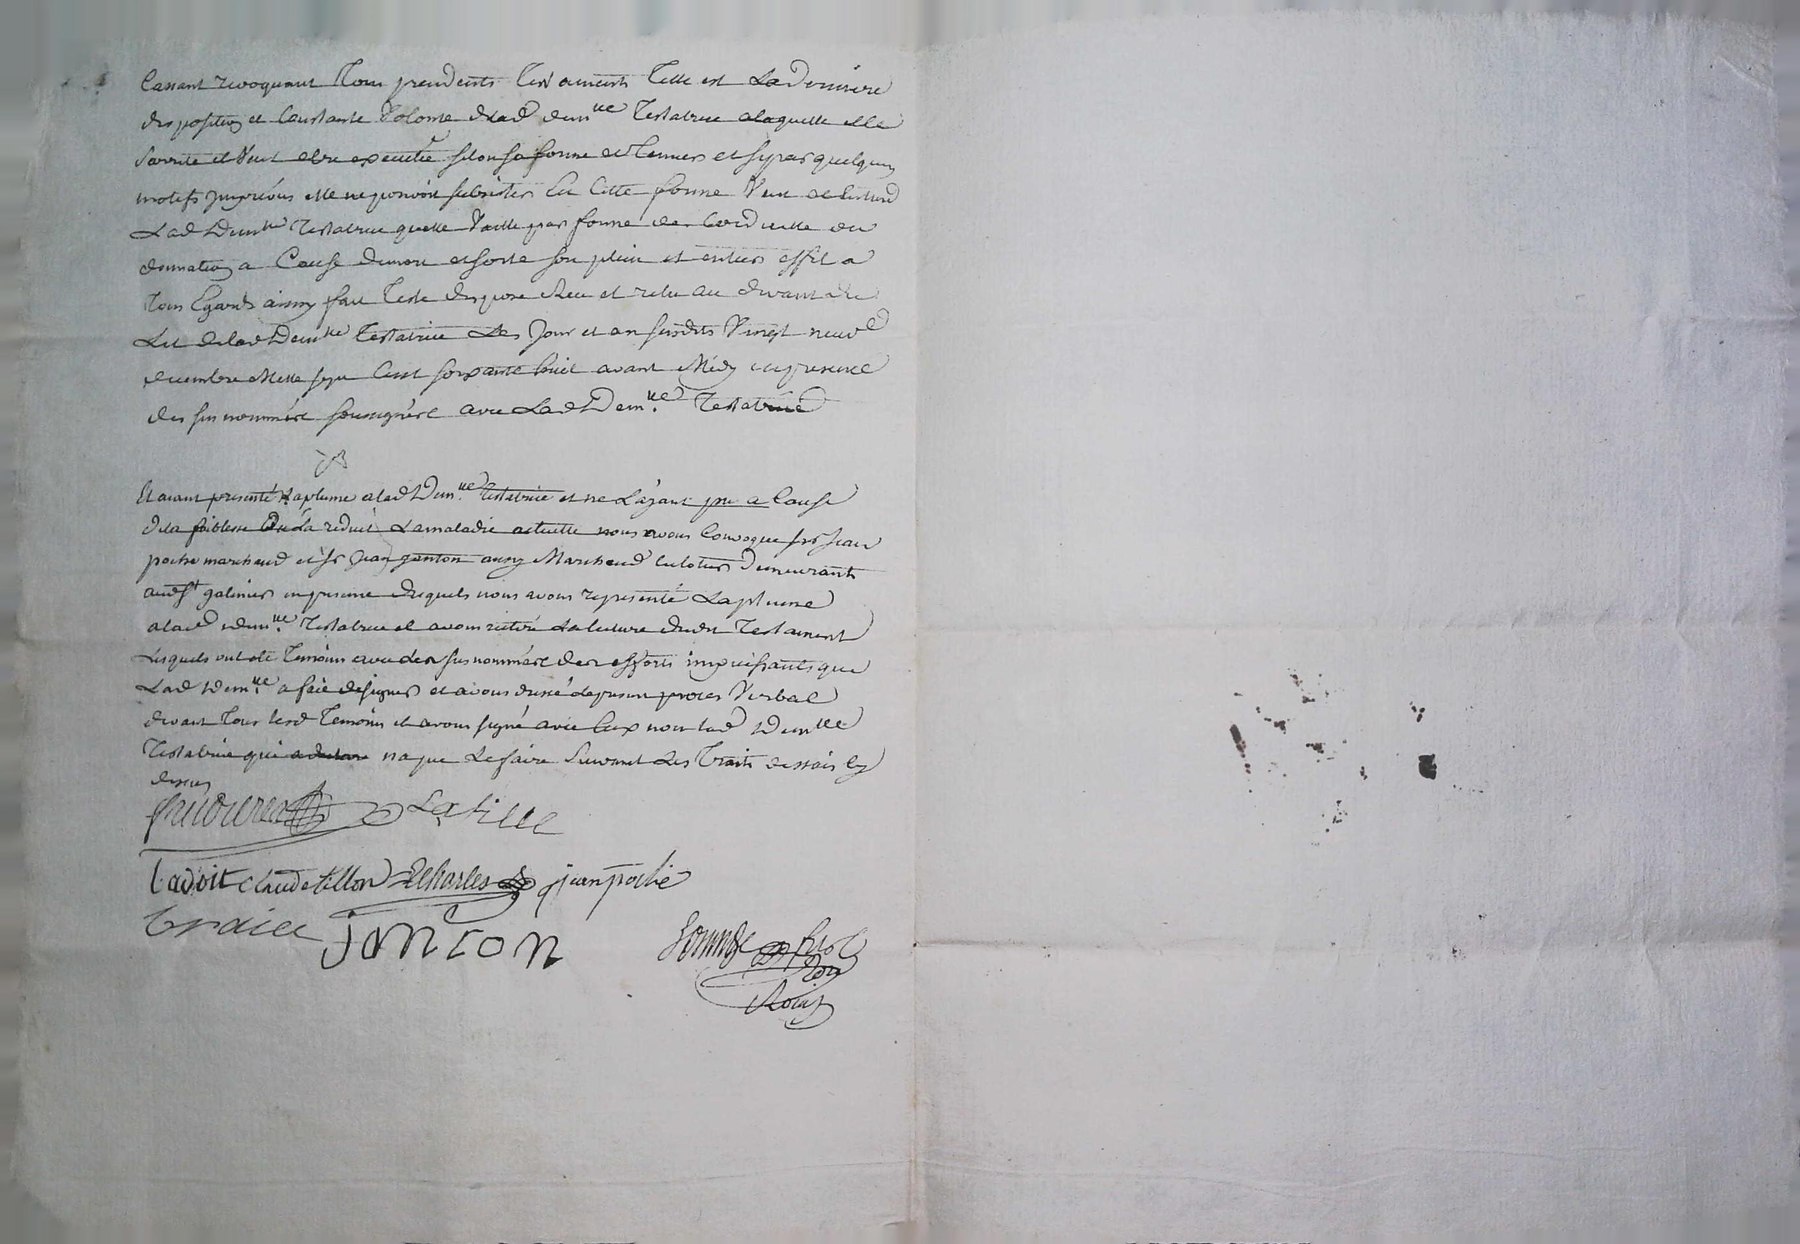 Cassant revoquant Tous precedents Testaments Telle est La Derniere
disposition et Constante Volonte de lad. dem.lle Testatrice a laquelle elle
et Veut etre executée selon sa forme et Teneur et sy par quelques
motifs imprévus elle ne pouvoit subsister En Cette forme Veut et entend
Lad. Dem.lle Testatrice quelle Vaille par forme de Codicille ou
donnation a Cause de mort et sorte son plein et entier effet a
Tous Egards ainsy fait Teste dispose Leu et releu au devant du
Lit de lad. Dem.lle Testatrice Les Jour et an susdits Vingt neuf
decembre Mille sept Cent soixante huit avant Midy en presence
des sus nommés soussignés avec Lad. Dem.lle Testatrice
Et ayant presenté La plume a lad. Dem.lle Testatrice et ne L'ayant pu a Cause
de la foiblesse La reduit La maladie actuelle nous avons Convoque sr Jean
poche marchand et sr Jean janton aussy Marchand Demeurants
aud. St galmier en presence desquels nous avons representé La plume
a lad. dem.lle Testatrice et avons La lecture dudit Testament
Lesquels ont ete Temoins avec les sus nommés des efforts impuissants que
Lad. Dem.lle a fait de signer et avons dressé le present proces Verbal
devant Tous lesd. Temoins et avons signé avec Eux non lad. Dem.lle
Testatrice qui na pu Le faire Suivant Les Traits dessais cy
dessus
Lafille
Ladoit Claude tillon Charles jean poche
janton